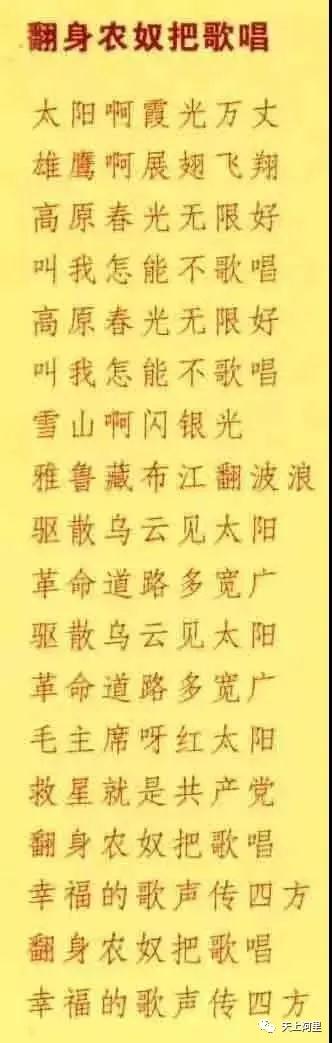 翻身农奴把歌唱
太阳啊霞光万丈
雄鹰啊展翅飞翔
高原春光无限好
叫我怎能不歌唱
高原春光无限好
叫我怎能不歌唱
雪山啊闪银光
雅鲁藏布江翻波浪
驱散乌云见太阳
革命道路多宽广
驱散乌云见太阳
革命道路多宽广
毛主席呀红太阳
救星就是共产党
翻身农奴把歌唱
幸福的歌声传四方
翻身农奴把歌唱
幸福的歌声传四方
天上阿里